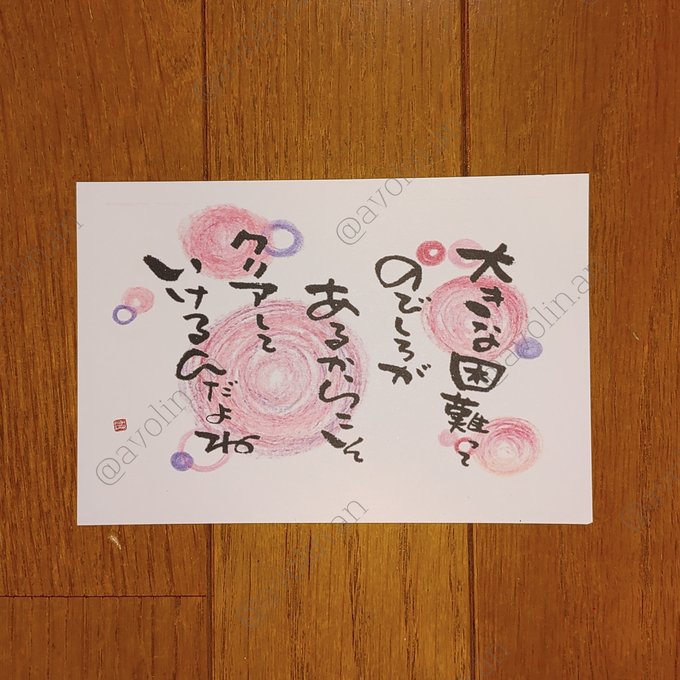 大きな困難って
のびしろが
あるからこそ
クリアして
いけるんだよね
@avolin.an
@avolin.an
@avolin.an